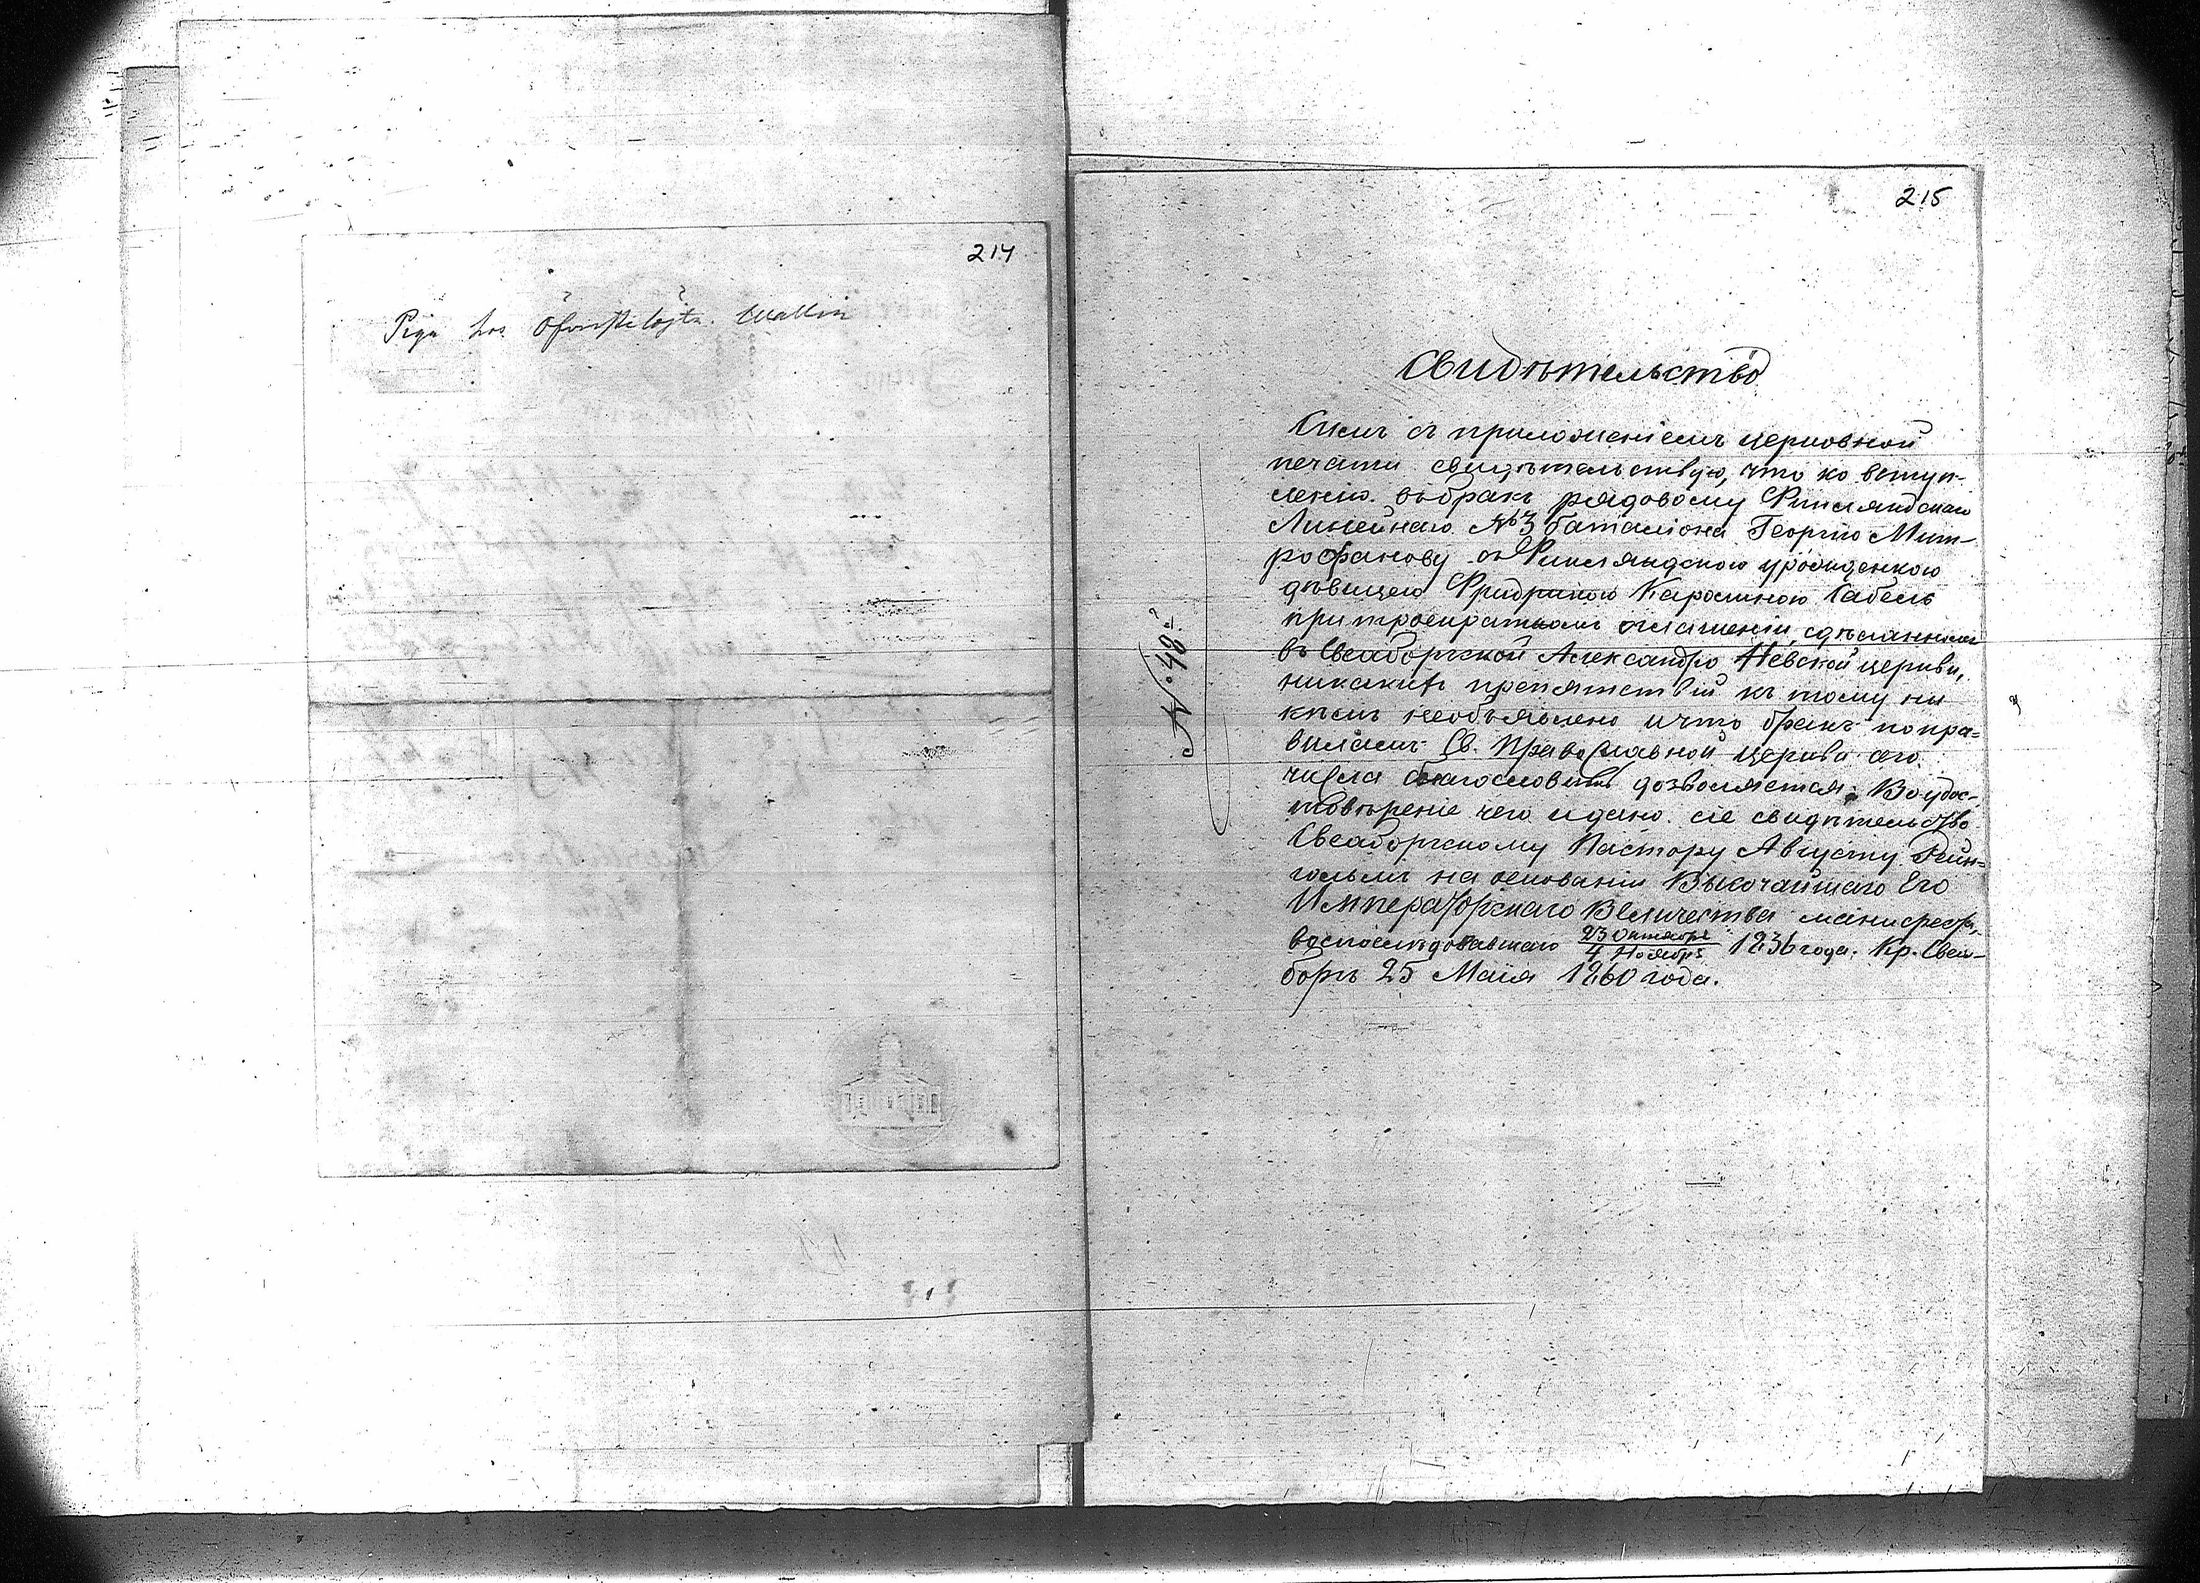 214
Piga hos Öfverstelöjtn. Wallin
215
Свидѣтельство
№ 48.
Симъ съ приложеніемъ церковной
печати свидѣтельствую, что ко вступ-
ленію въ бракъ рядовому Финляндскаго
Линейнаго №3 баталіона Георгію Мит-
рофанову съ Финляндскою уроженкою
дѣвицею Фридрикою Каролиною Сабель
при троекратномъ оглашеніи, сдѣланномъ
въ Свеаборгской Александро Невской церкви,
никакихъ препятствій къ тому ни
кѣмъ необъявлено и что бракъ по пра=
виламъ Св. Православной церкви сего
числа благословить дозволяется. Во удос-
товѣреніе чего и дано сіе свидѣтельство
Свеаборгскому Пастору Августу Рейн=
гольму на основаніи Высочайшаго Его
Императорскаго Величества манифеста,
воспослѣдовавшаго 23 Октября / 4 Ноября 1836 года. Кр. Свеа-
боргъ 25 Маія 1860 года.